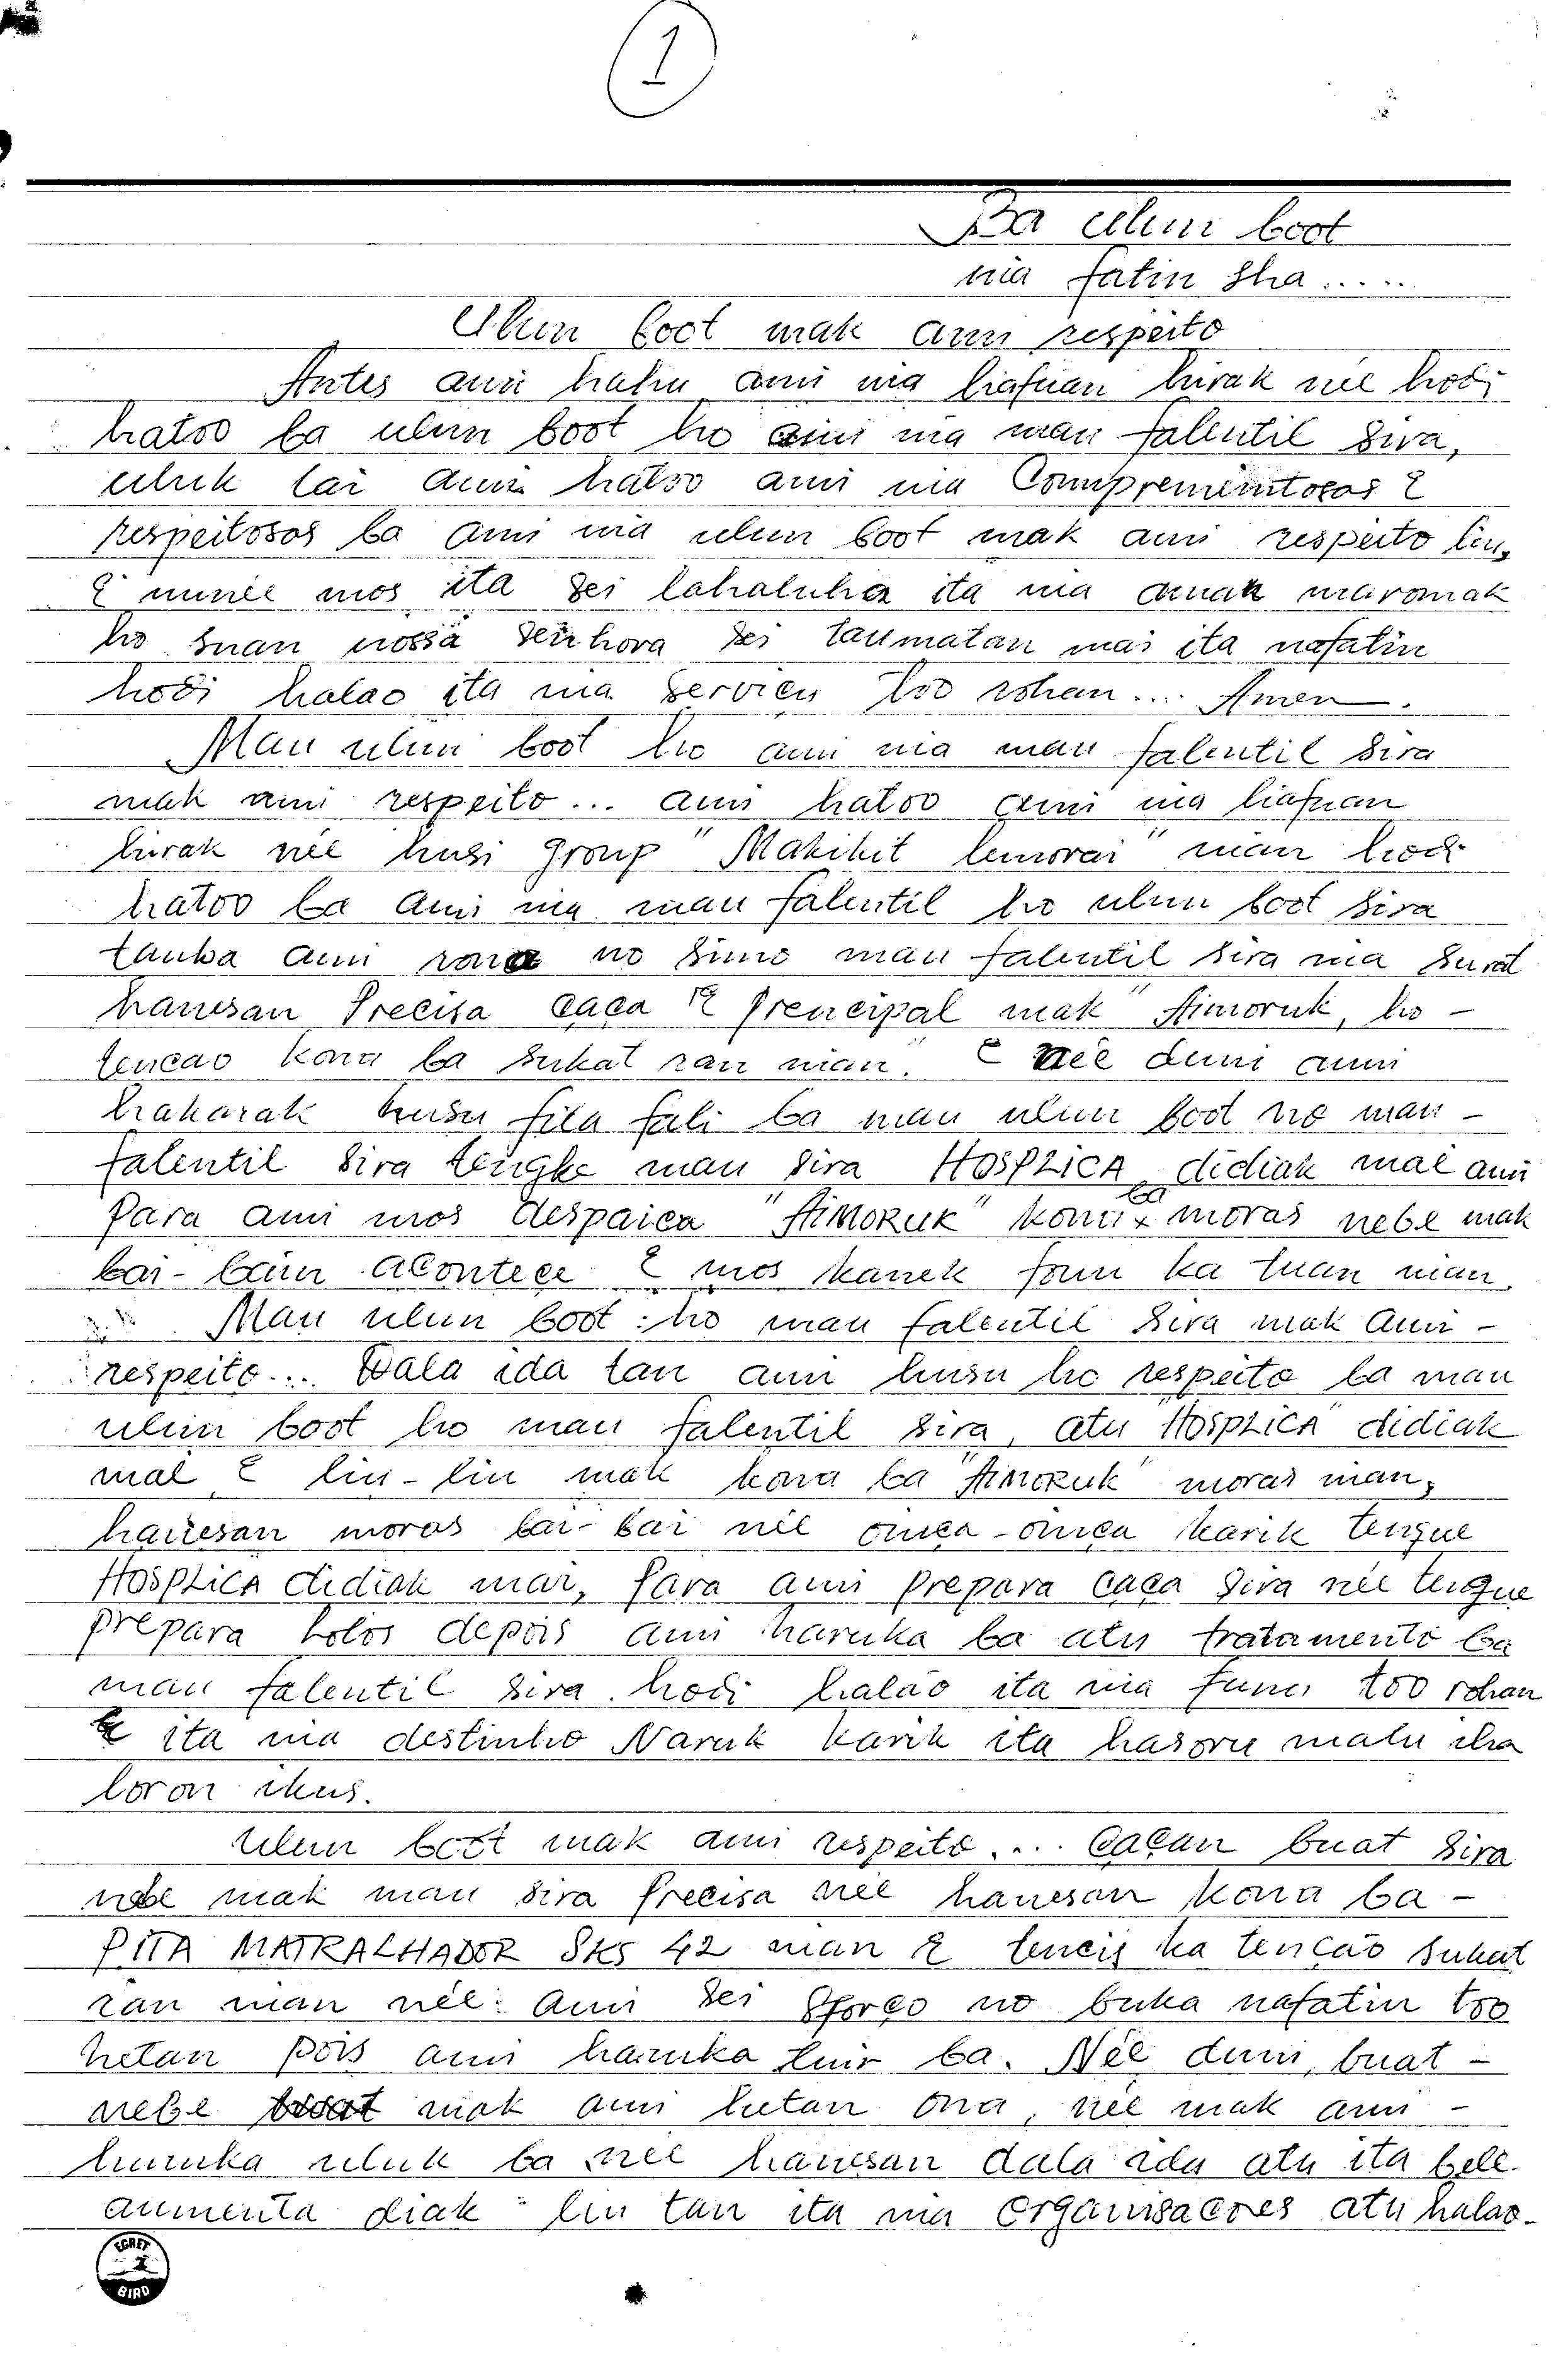 1
Ba ulun boot
nia fatin Sha.....
Ulun boot mak ami respeito
Antes ami hahu ami nia liafuan hirak neé hodi
hatoo ba ulun boot ho ami nia mau falentil sira,
uluk lai ami hatoo ami nia Comprementosos E
respeitosos ba ami nia ulun boot mak ami respeito liu,
E nuneé mos ita sei lahaluha ita nia amak maromak
ho suan nossa senhora sei taumatan mai ita nafatin
hodi halao ita nia servicu too rohan.... Amen.
Mau ulun boot ho ami nia mau falentil sira
mak ami respeito... ami hatoo ami nia liafuan
hirak neé husi group "Makikit lemorai" nian hodi
hatoo ba ami nia mau falentil ho ulun boot sira
tanba ami rona no simo mau falentil sira nia surat
hanesan Precisa caça E prencipal mak "Aimoruk, ho -
tencao kona ba sukat ran nian". E neé duni ami
hakarak husu fila fali ba mau ulun boot no mau -
falentil sira tengke mau sira HOSPLICA didiak mai ami
Para ami mos despaica "AIMORUK" kona ba moras nebe mak
bai-bain acontece E mos kanek foun ka tuan nian.
Mau ulun boot : ho mau falentil sira mak ami -
respeito... Dala ida tan ami husu ho respeito ba mau
ulun boot ho mau falentil sira, atu "HOSPLICA" didiak
mai E liu-liu mak kona ba "AIMORUK" moras nian,
hanesan moras bai-bai neé oinça-oinça karik tengue
HOSPLICA didiak mai, Para ami prepara caça sira neé tengue
prepara holos depois ami haruka ba atu tratamento ba
mau falentil sira hodi halao ita nia funu too rohan
E ita nia destinho Naruk karik ita hasoru malu iha
loron ikus.
Ulun boot mak ami respeito.... Caçan buat sira
nebe mak mau sira Precisa neé hanesan kona ba -
PITA MATRALHADOR SKS 42 nian E tencis ka tenção sukat
ran nian neé: ami sei sforço no buka nafatin too
hetan pois ami haruka tuir ba. Neé duni, buat -
nebe mak ami hetan ona, neé mak ami -
haruka uluk ba neé hanesan dala ida atu ita bele
aumenta diak liu tan ita nia organisacoes atu halao-
EGRET
BIRD